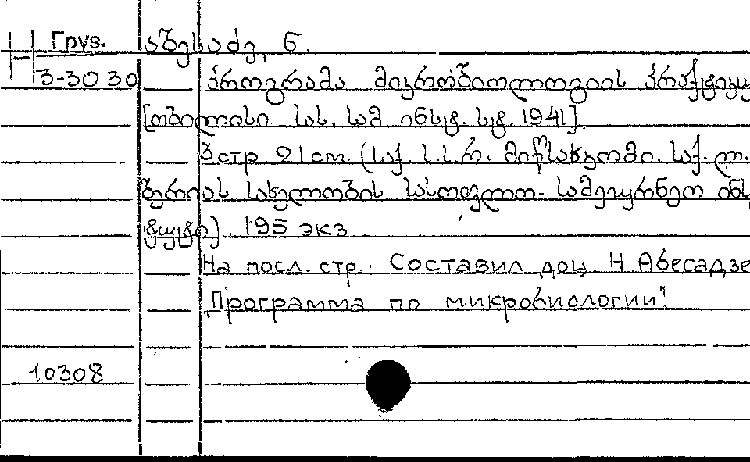 Груз. აბესაძე, ნ.
3-3030 პროგრამა მიკრობიოლოგიის პრაქტიკუ
[თბილისი სას. სამ. ინსტ. სტ. 1941]
8 стр 21 см. (საქ. ს.ს.რ. მიწსახკომი. საქ. ლ.
ბერიას სახელობის სასოფლო-სამეურნეო ინს
ტიტუტი) 195 экз
На посл. стр.: Составил доц Н Абесадзе
"Программа по микробиологии".
10308